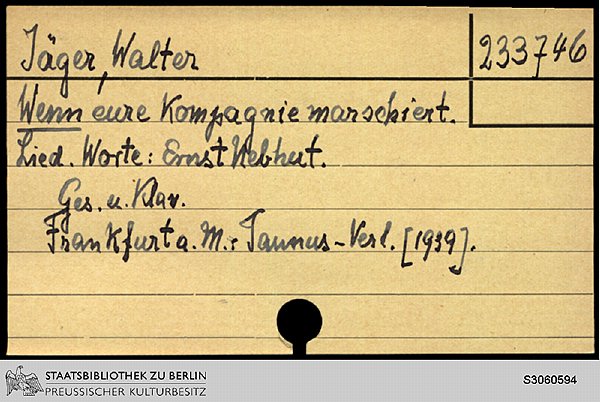 Jäger, Walter
233746
Wenn eure Kompagnie marschiert.
Lied. Worte: Ernst Nebhut.
Ges. u. Klav.
Frankfurt a. M.: Taunus-Verl. [1939].
STAATSBIBLIOTHEK ZU BERLIN
PREUSSISCHER KULTURBESITZ
S3060594